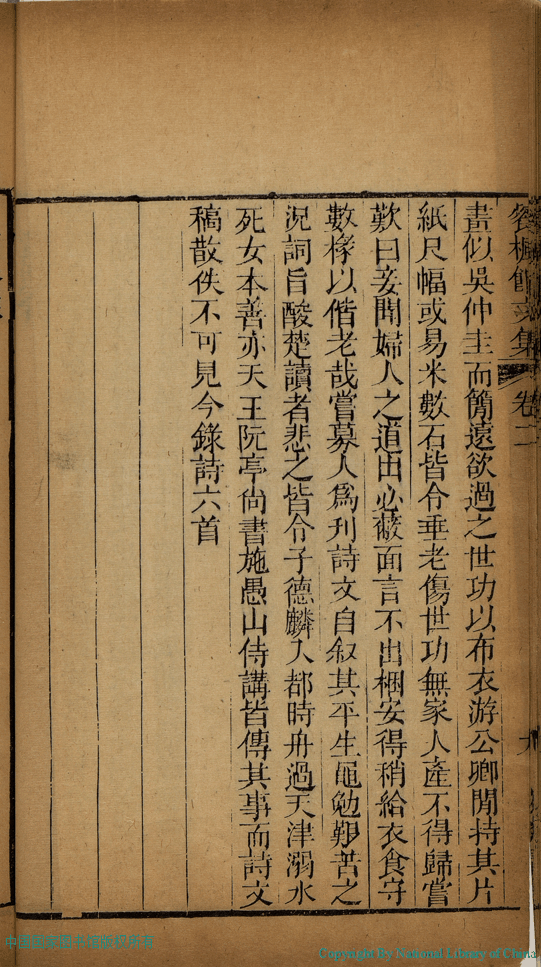 畫似吳仲圭而簡遠欲過之世功以布衣游公卿閒持其片
紙尺幅或易米數石皆令垂老傷世功無家人產不得歸嘗
歎曰妾聞婦人之道出必蔽面言不出梱安得稍給衣食守
數椽以偕老哉嘗募人爲刋詩文自叙其平生黽勉艱苦之
況詞旨酸楚讀者悲之皆令子德麟入都時舟過天津溺水
死女本善亦夭王阮亭尚書施愚山侍講皆傳其事而詩文
稿散佚不可見今錄詩六首
卷二
Copyright By National Library of China